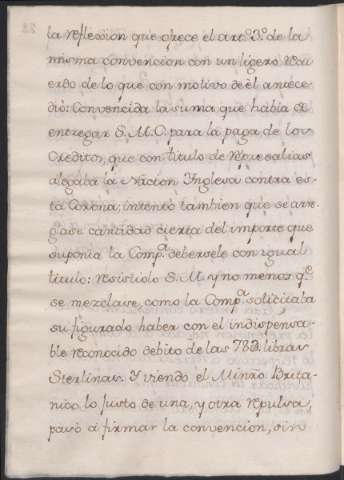 la reflession que ofrece el art.º 3.º de la
misma convencion con un ligero recu
erdo de lo que con motivo de èl antece
diò: Convencida la suma que habia de
entregar S. M. C. para la paga de los
Creditos, que con titulo de represalias
alegaba la Nacion Inglesa contra es-
ta Corona; intentò tambien que se arre-
glase cantidad cierta del importe que
suponia la Comp.ª debersele con igual
titulo: resistiolo S. M. y no menos q.e
se mezclase, como la Comp.ª solicitaba
su figurado haber con el indispensa-
ble reconocido debito de las 78 libras
Sterlinas. Y viendo el Minrô Brita-
nico lo justo de una, y otra repulsa,
pasò à firmar la convencion, sin